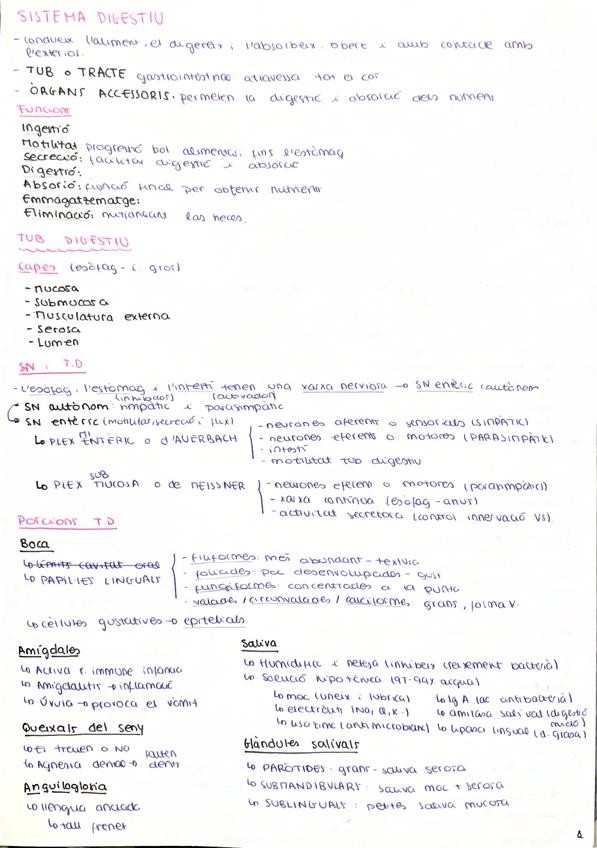 SISTEMA DIGESTIU
- Condueix l'aliment, el digereix i l'absorbeix. Obert i amb contacte amb
l'exterior.
- TUB O TRACTE gastrointestinal: atravessa tot el cos
- ÒRGANS ACCESSORIS: permeten la digestió i absorció dels nutrients
Funcions
Ingestió
Motilitat: progressió bol alimentari fins l'estòmag
Secreció: facilitar digestió i absorció
Digestió:
Absorió: funció final per obtenir nutrients
Emmagatzematge:
Eliminació: mitjançant las heces.
TUB DIGESTIU
Capes (esòfag - i. gros)
- Mucosa
- Submucosa
- Musculatura externa
- Serosa
- Lumen
SN i T.D
- L'esòfag, l'estómag i l'intestí tenen una xarxa nerviosa → SN entèric (autònom
(inhibidor) (activador)
SN autònom: simpàtic i parasimpàtic
SN entèric (motilitat, secreció i flux)
↳ PLEX MIENTÈRIC o d'AUERBACH
- neurones aferents o sensorials (SIMPÀTIC)
- neurones eferents o motores (PARASIMPÀTIC)
- intestí
- motilitat tub digestiu
↳ PLEX SUBMUCOSA o de MEISSNER
- neurones eferents o motores (parasimpàtic)
- xarxa contínua (esòfag - anus)
- activitat secretora (control innervació VS).
PORCIONS T D
Boca
↳ límits cavitat oral
↳ PAPIL·LES LINGUALS
- filiformes: més abundant - textura
- foliades poc desenvolupades - gust
- fungiformes: concentrades a la punta
- valades / circunvalades / caliciformes grans, forma V.
↳ cèl·lules gustatives → epitelials
Amígdales
↳ Activa r. immune infància
↳ Amigdalitis → inflamació
↳ Úvula → provoca el vòmit
Queixals del seny
↳ Es treuen o NO
↳ Agnesia dental → falten dents
Anquiloglosia
↳ llengua anclada
↳ tall frenet
Saliva
↳ Humidifica i neteja (inhibeix creixement bacterià)
↳ Solució hipotònica (97-99% aqua)
↳ moc (uneix i lubrica)
↳ electròlits (Na, Cl, K..)
↳ lisozima (antimicrobiana)
↳ Ig A (ac antibacterià)
↳ amilasa salival (digestió midó)
↳ lipasa lingual (d. grasa)
Glàndules salivals
↳ PARÒTIDES: grans - saliva serosa
↳ SUBMANDIBULARS: saliva moc + serosa
↳ SUBLINGUALS: petites saliva mucosa
1